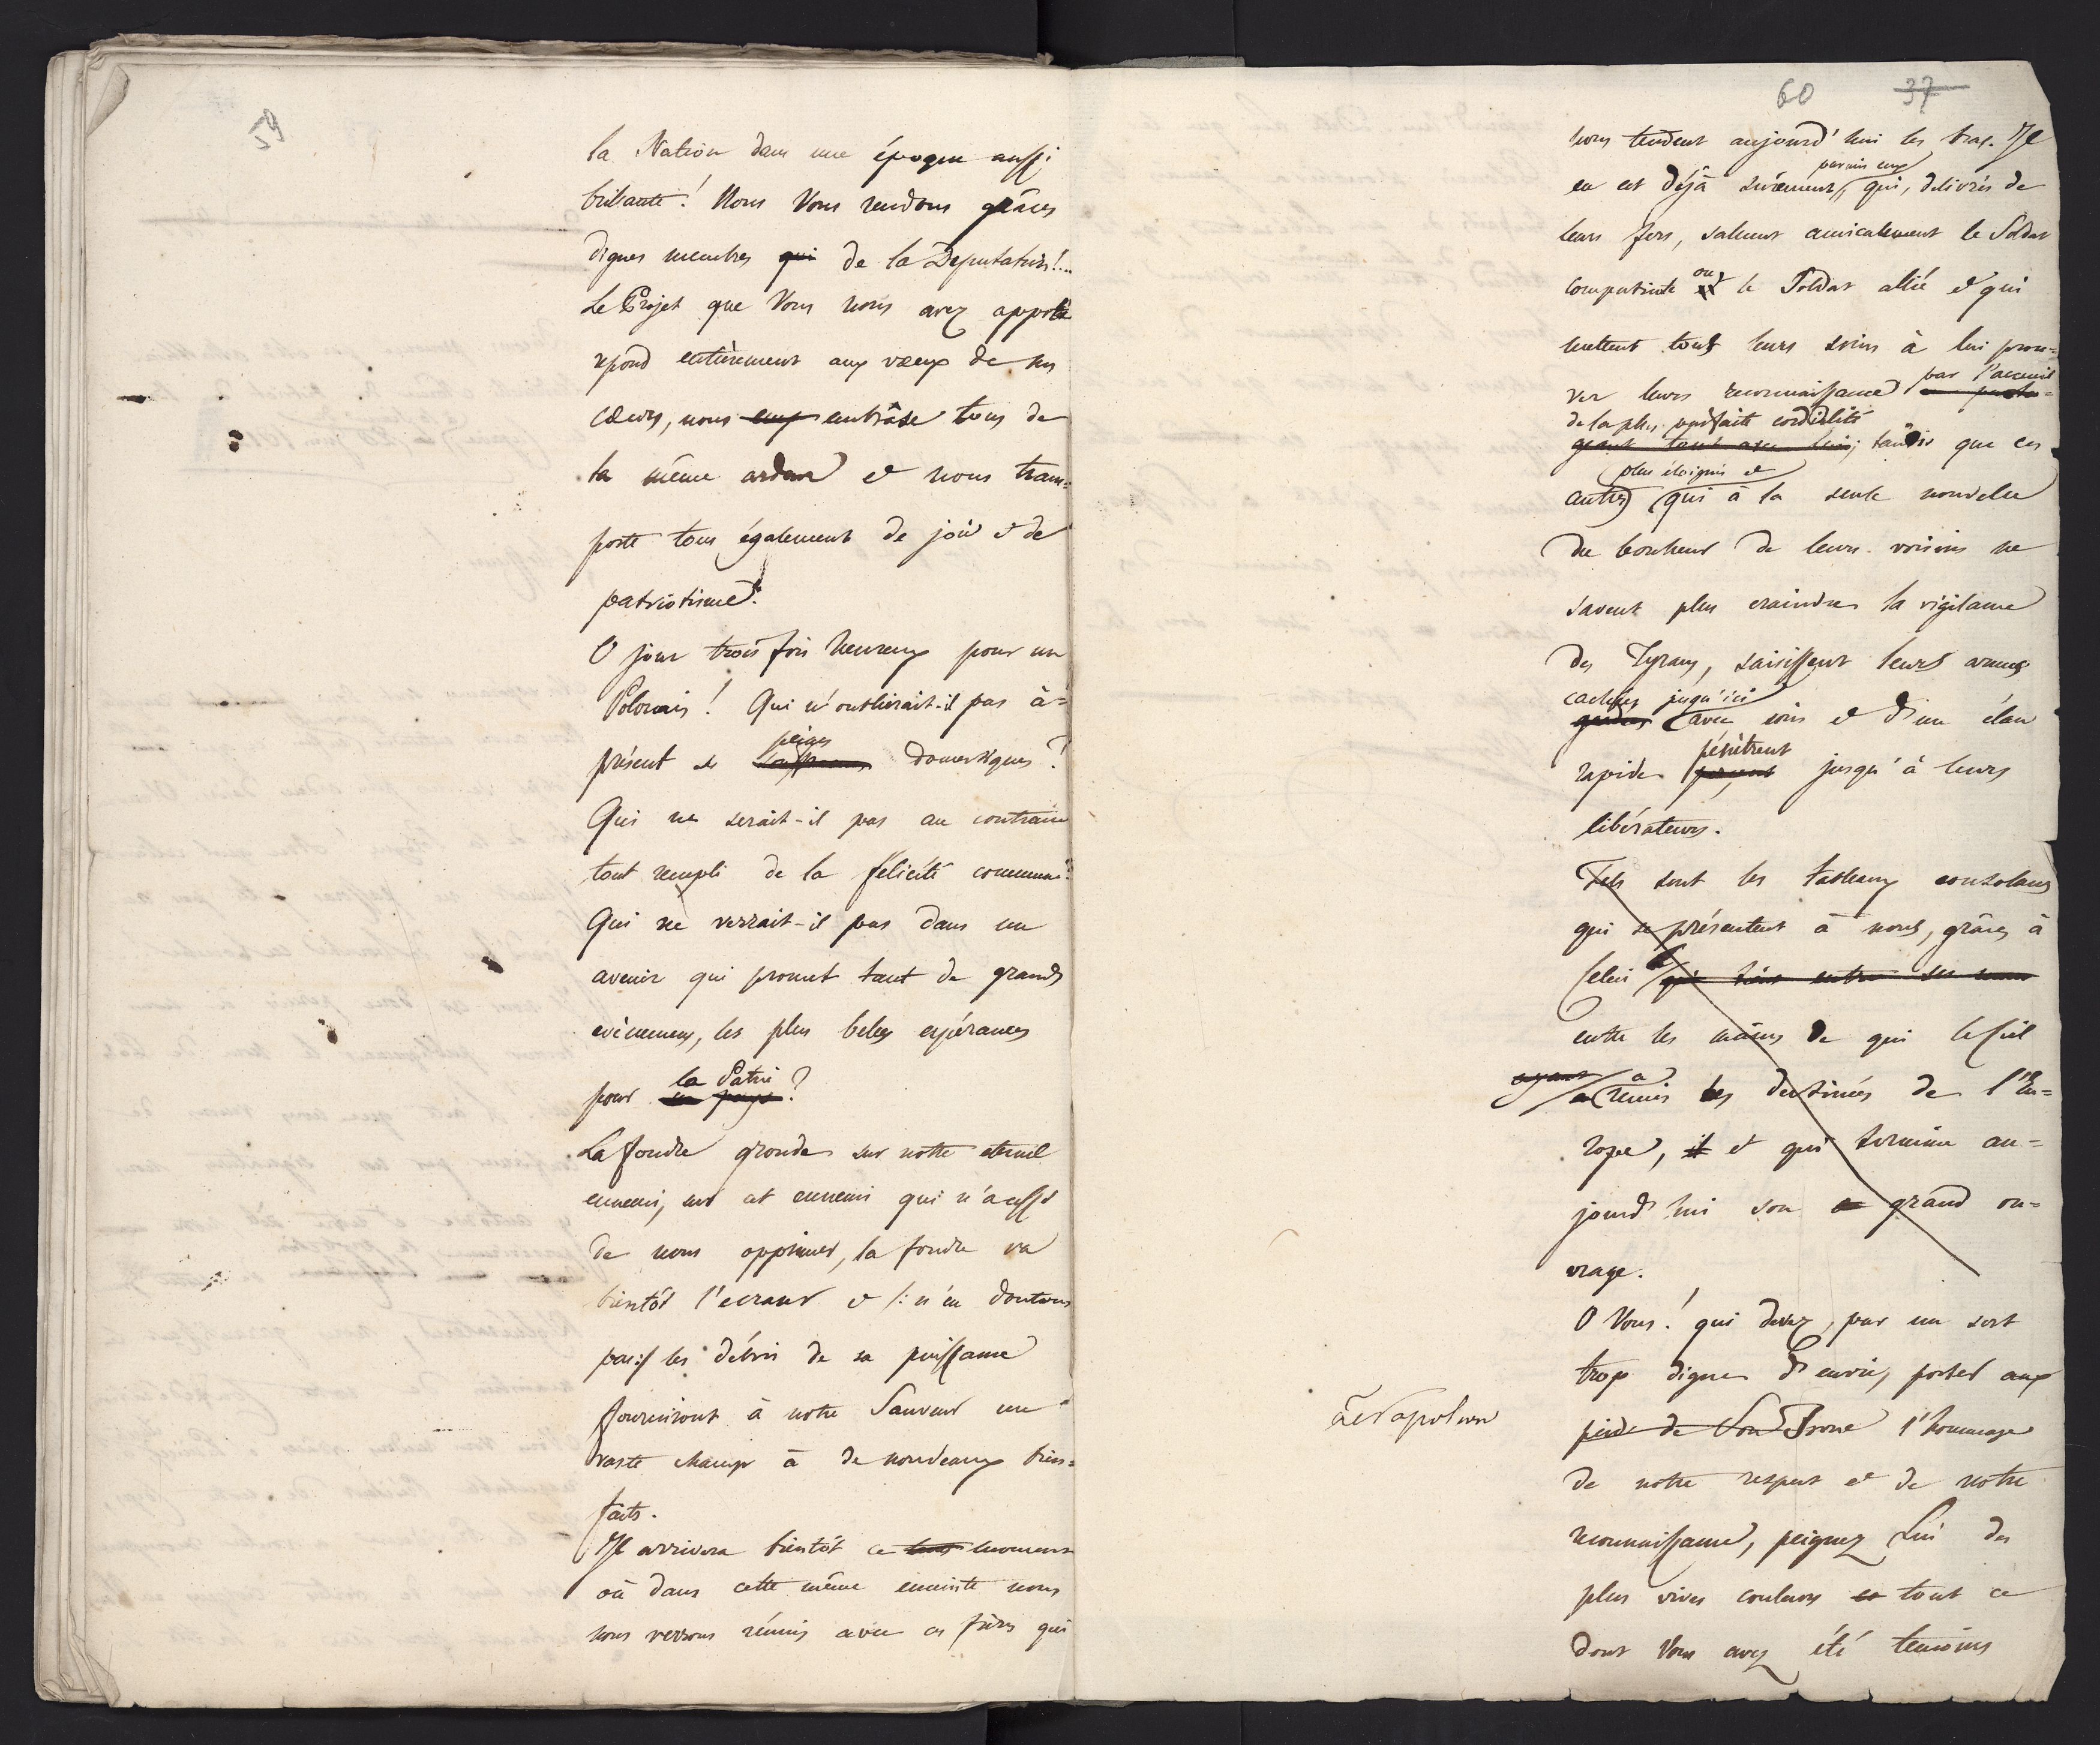 59
la Nation dans une époque aussi
brillante! Nous Vous rendons grâces
dignes membres qui de la Deputation!...
Le Projet que Vous nous avez apporté
répond entièrement aux vœux de nos
cœurs, nous embrâse tous de
la même ardeur et nous trans=
porte tous également de joie et de
patriotisme.
O jour trois fois heureux pour un
Polonais! Qui n'oublierait-il pas à=
peines
présent ses domestiques?
Qui ne serait-il pas au contraire
tout rempli de la félicité commune?
Qui ne verrait-il pas dans un
avenir qui promet tant de grands
evènemens, les plus belles espérances
la Patrie
pour sa pays?
La foudre gronde sur notre eternel
ennemi, sur cet ennemi qui n'a cessé
de nous opprimer, la foudre va
bientôt l'ecraser et /: n'en doutons
pas :/ les débris de sa puissance
fourniront à notre Sauveur un
vaste champ à de nouveaux bien=
faits.
Il arrivera bientôt ce moment
où dans cette même enceinte nous
nous verrons réunis avec ces frères qui
60 37
nous tendent aujourd'hui les bras. Il
parmis eux
en est déjà surement, qui, delivrés de
leurs fers, saluent amicalement le Soldat
ou
compatriote et le Soldat allié et qui
mettent tous leurs soins à lui prou=
par l'acceuil
ver leurs reconnaissance en parta=
de la plus parfaite cordialité
geant tout avec lui; tandis que ces
plus éloignés et
autres qui à la seule nouvelle
du bonheur de leurs voisins ne
savent plus craindre la vigilance
des Tyrans, saisissent leurs armes
cachées jusqu'ici
gardées avec soin et d'un élan
pénètrent
rapide percent jusqu'à leurs
libérateurs.
Tels sont les tableaux consolans
qui se présentent à nous, grâces à
Celui qui tient entre ses mains
entre les mains de qui le Ciel
ayant a
a remis les destinées de l'Eu=
rope, il et qui termine au=
jourd'hui son grand ou=
vrage.
O Vous! qui devez, par un sort
trop digne d'envie, porter aux
à Napoleon
pieds de Son Trone l'hommage
de notre respect et de notre
reconnaissance, peignez Lui des
plus vives couleurs tout ce
dont Vous avez été temoins